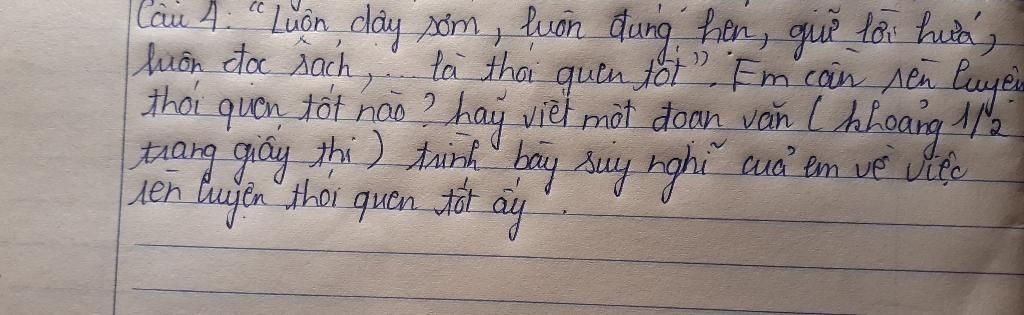 Câu 4: "Luôn dậy sớm, luôn đúng hẹn, giữ lời hứa,
luôn đọc sách,... là thói quen tốt". Em cần rèn luyện
thói quen tốt nào? hãy viết một đoạn văn (khoảng 1/2
trang giấy thi) trình bày suy nghĩ của em về việc
rèn luyện thói quen tốt ấy.